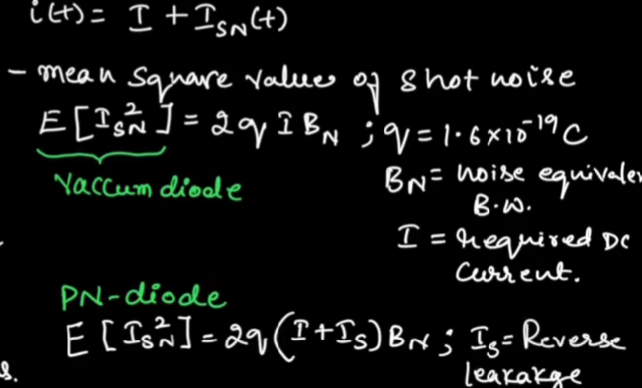 i(t) = I + I_SN(t)
- mean square value of shot noise
E [I_SN^2] = 2q I B_N ; q = 1.6×10^-19 C
Vaccum diode
B_N = noise equivale
B.W.
I = Required DC
Current.
PN-diode
E [I_SN^2] = 2q (I + I_S) B_N ; I_S = Reverse
leakakge
s.